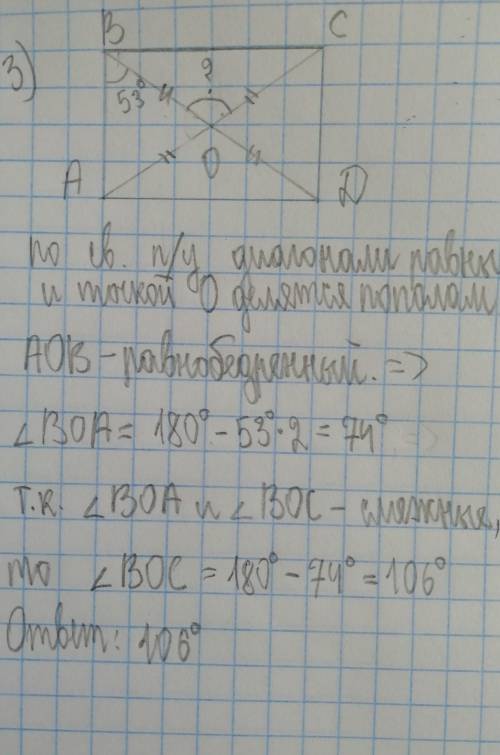 3)
B
C
?
53°
O
A
D
по св. п/у диагонали равны
и точкой O делятся пополам
AOB - равнобедренный. =>
∠BOA = 180° - 53°·2 = 74° =>
т.к. ∠BOA и ∠BOC - смежные,
то ∠BOC = 180° - 74° = 106°
Ответ: 106°